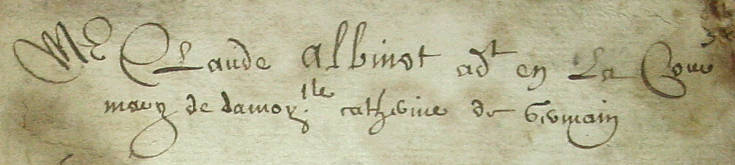 Me Claude Albinot adt en La Cour
mary de damoi.lle catherine de Germain